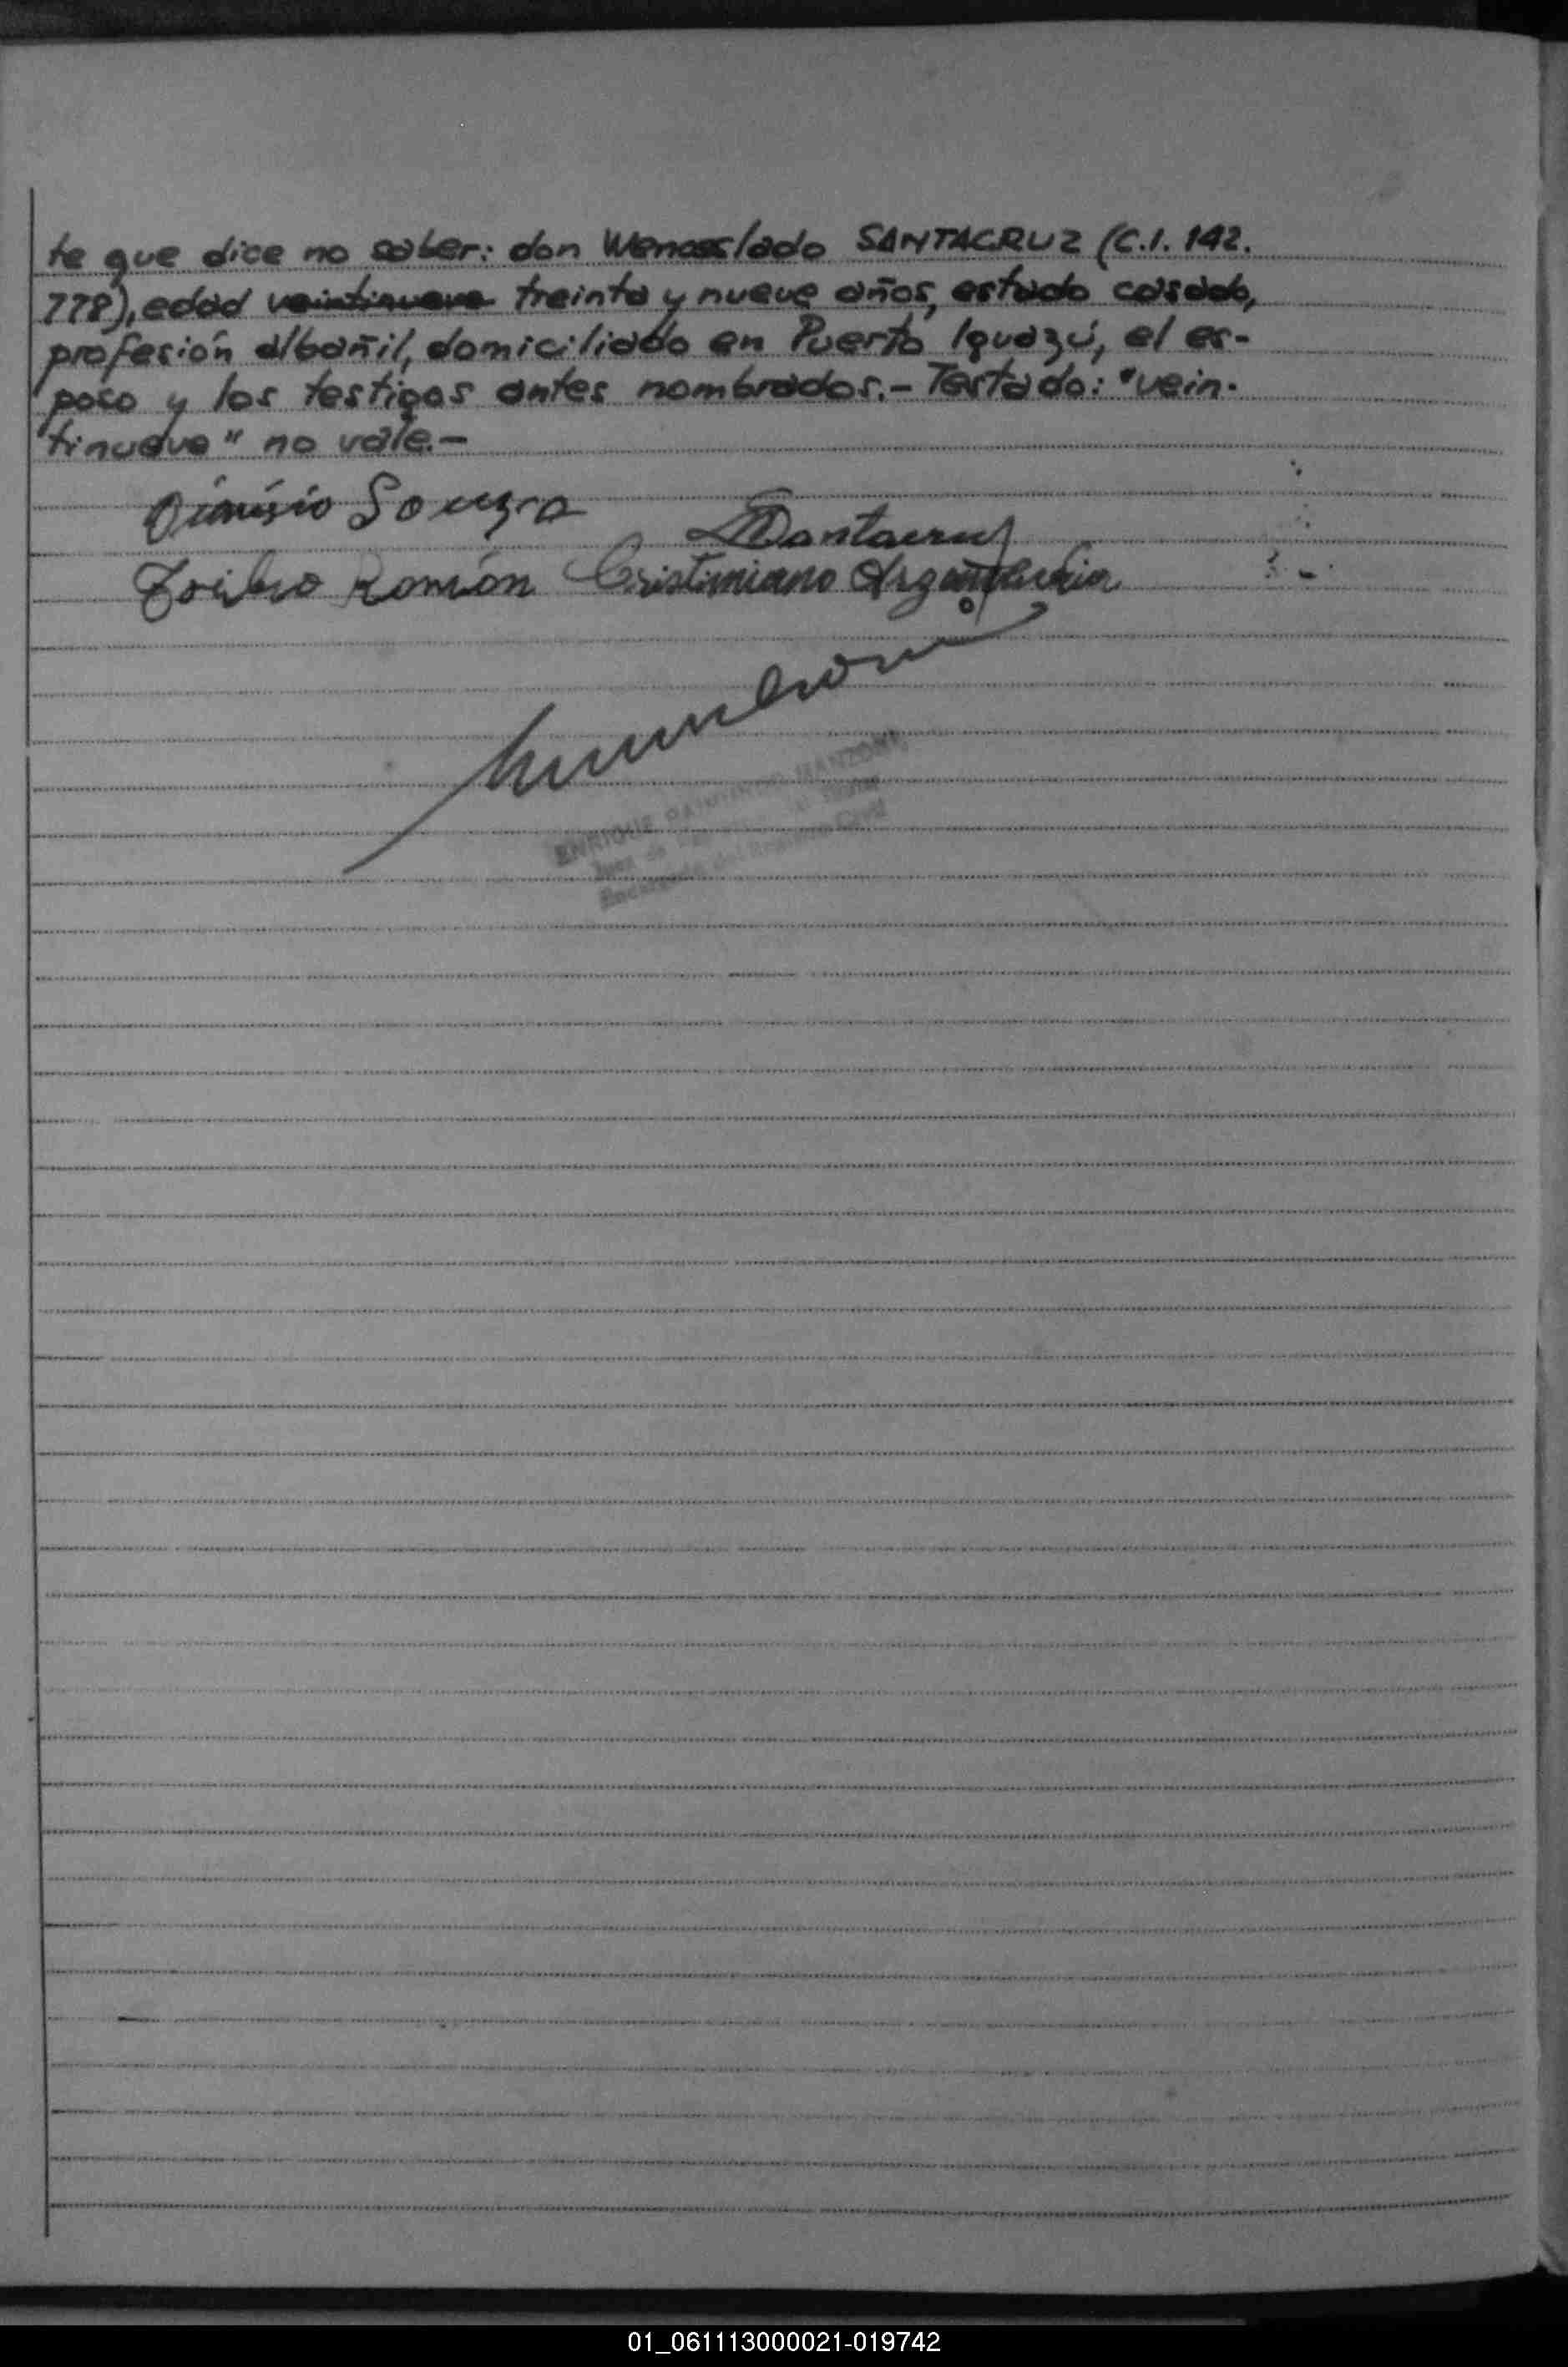 te que dice no saber: don Wenceslado SANTACRUZ (C.I. 142.
778), edad veintinueve treinta y nueve años, estado casado,
profesión albañil, domiciliado en Puerto Iguazú, el es-
poso y los testigos antes nombrados.- Testado: "vein-
tinueve" no vale.-
Dionisio Souzra
Santacruz
Toribio Román Cristiniano
ENRIQUE MANZONI
Juez de
Encargado del Registro Civil
01_061113000021-019742